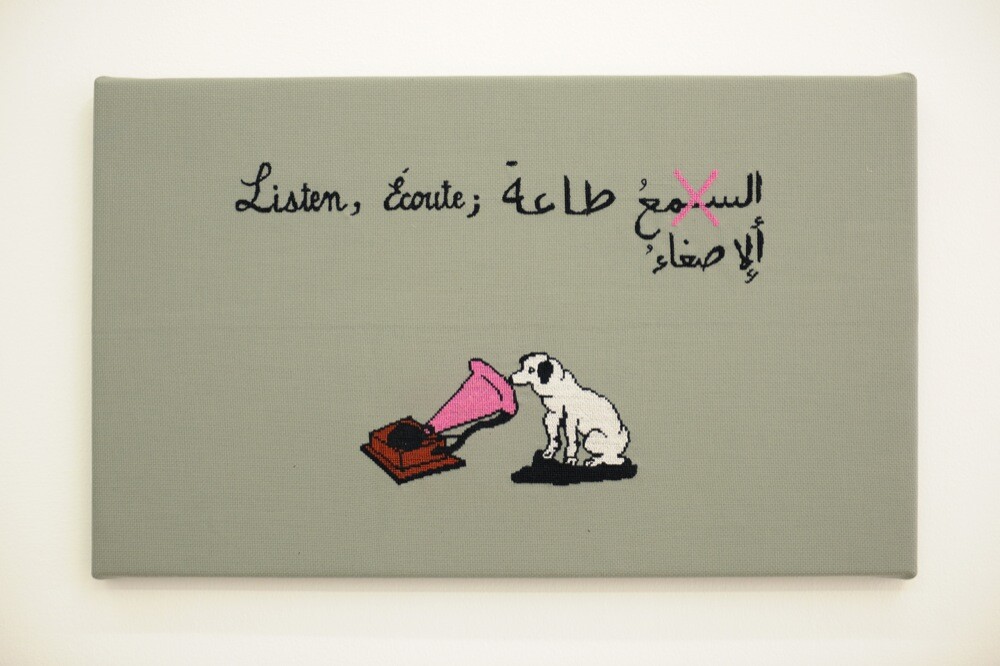 Listen, Écoute; طاعة السمعُ
ألإصغاءُ